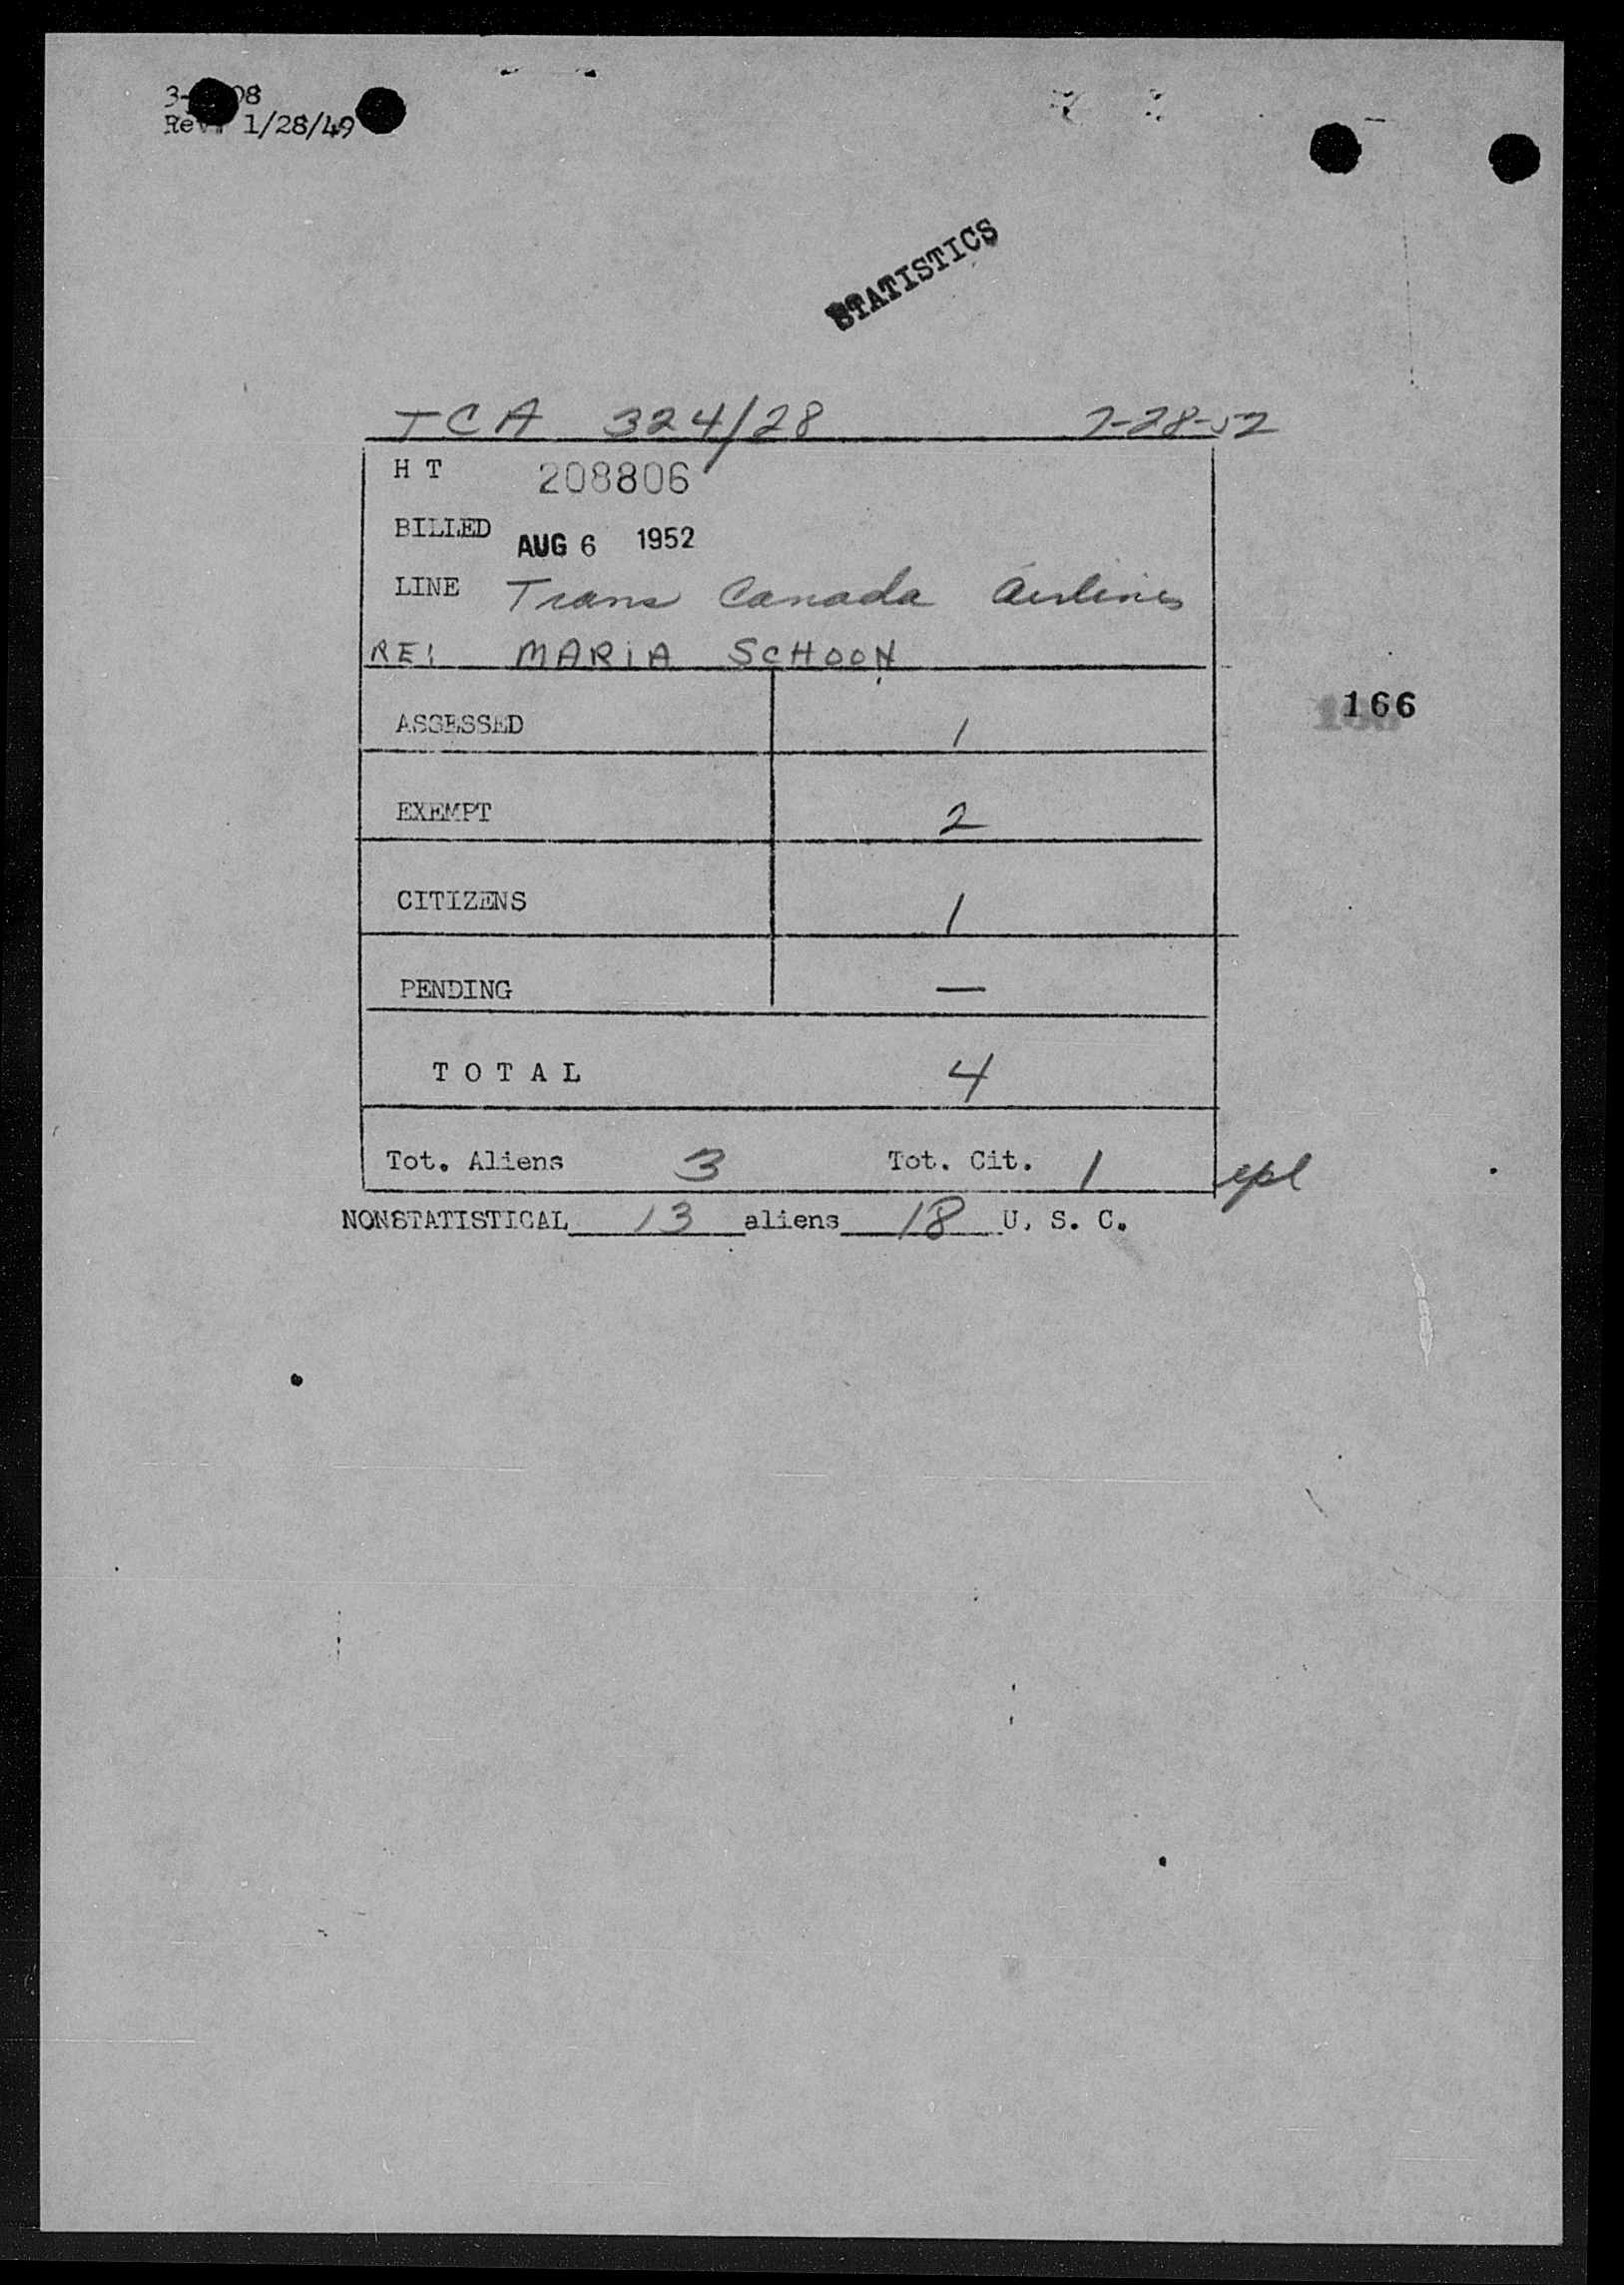 Rev. 1/28/49
STATISTICS
TCA 324/28 7-28-52
H T 208806
BILLED AUG 6 1952
LINE Trans Canada Airlines
RE: MARIA SCHOON
166
ASSESSED 1
EXEMPT 2
CITIZENS 1
PENDING —
T O T A L 4
Tot. Aliens 3 Tot. Cit. 1
NONSTATISTICAL 13 aliens 18 U. S. C.